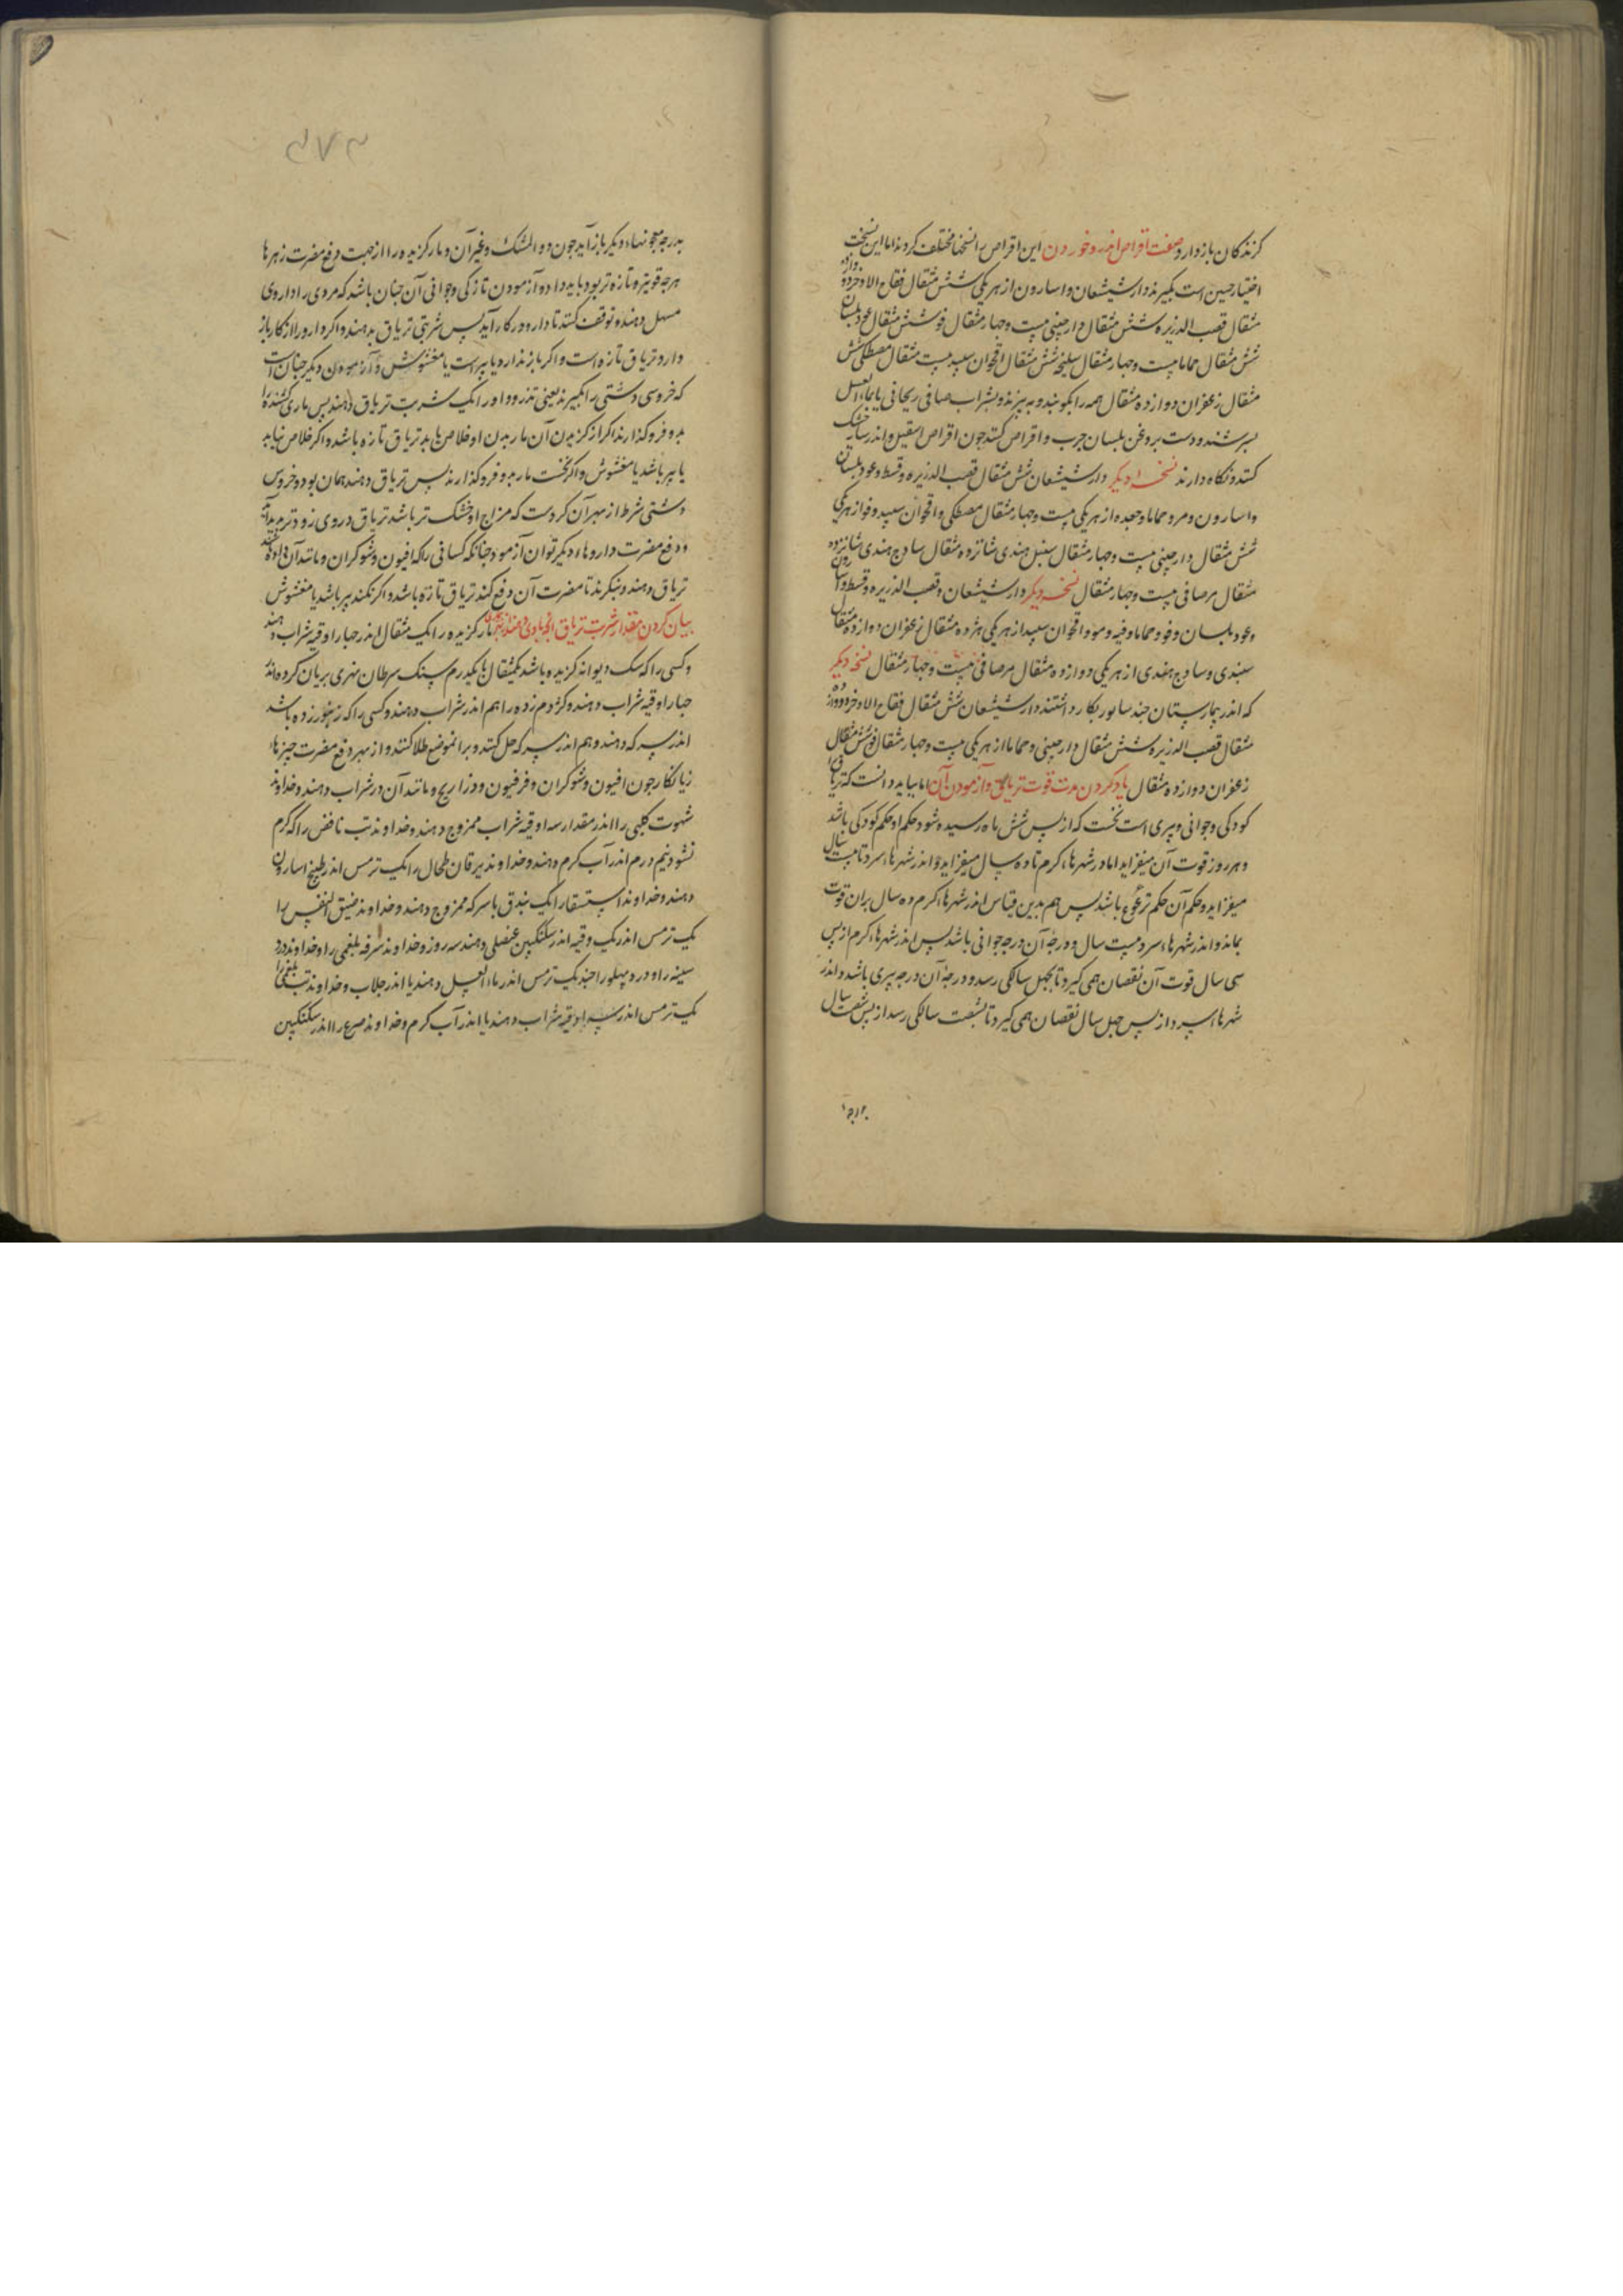 کزندکان بازدارد صفت اقراص اندروخورون این اقراص را نسختها مختلف کرده‌اند اما این نسخت
اختیار حنین است بکیرند دارشیشعان و اسارون از هر یکی شش مثقال فقاح الاذخر دوازده
مثقال قصب الذریره شش مثقال دارچینی بیست و چهار مثقال فو شش مثقال عود بلسان
شش مثقال حماما بیست و چهار مثقال سلیخه شش مثقال اقحوان سپید بیست مثقال مصطکی شش
مثقال زعفران دوازده مثقال همه را بکوبند و ببیزند و بشراب صافی ریحانی یا بماء العسل
بسرشند و دست بروغن بلسان چرب و اقراص کنند چون اقراص اسقیل و اندر سایه خشک
کنند و نکاه دارند نسخه دیکر دارشیشعان شش مثقال قصب الذریره و قسط و عود بلسان
و اسارون و مرو حماما و جعده از هر یکی بیست و چهار مثقال مصطکی و اقحوان سپید و فو از هر یکی
شش مثقال دارچینی بیست و چهار مثقال سنبل هندی شانزده مثقال سادج هندی شانزده
مثقال مرصافی بیست و چهار مثقال نسخه دیکر دارشیشعان و قصب الذریره و قسط و اسارون
و عود بلسان و فو و حماما و فیه و مو و اقحوان سپید از هر یکی هژده مثقال زعفران دوازده مثقال
سندی و سادج هندی از هر یکی دوازده مثقال مرصافی بیست و چهار مثقال نسخه دیکر
که اندر بیمارستان جندسابور بکار داشتند دارشیشعان شش مثقال فقاح الاذخر دوازده
مثقال قصب الذریره شش مثقال دارچینی و حماما از هر یکی بیست و چهار مثقال فو شش مثقال
زعفران دوازده مثقال یاد کردن مدت قوت تریاق و آزمودن آن اما بباید دانست که تریاق را
کودکی و جوانی و پیری است نخست که از پس شش ماه رسیده شود حکم او حکم کودکی باشد
و هر روز قوت آن میفزاید اما در شهرهاء کرم تا ده سال میفزاید و اندر شهرهاء سرد تا بیست سال
میفزاید و حکم آن حکم ترعرع باشد پس هم بدین قیاس اندر شهرهاء کرم ده سال بران قوت
بماند و اندر شهرهاء سرد بیست سال و درجه آن درجه جوانی باشد پس اندر شهرهاء کرم از پس
سی سال قوت آن نقصان همی کیرد تا بچهل سالکی رسد و درجه آن درجه پیری باشد و اندر
شهرهاء سرد از پس چهل سال نقصان همی کیرد تا بشصت سالکی رسد از پس شصت سال
بدرجه
بدرجه معجونهاء دیکر بازآید چون دواء المشک و غیر آن و مارکزیده را از جهت دفع مضرت زهرها
هرچه قویتر و تازه‌تر بود باید داد و آزمودن تازکی و جوانی آن چنان باشد که مردی را داروی
مسهل دهند و توقف کنند تا دارو در کار آید پس شربتی تریاق بدهند و اکر دارو را از کار باز
دارد تریاق تازه است و اکر باز ندارد یا پیر است یا مغشوش و آزمودن دیکر چنان است
که خروسی دشتی را بکیرند یعنی تذرو و او را یک شربت تریاق دهند پس ماری کشنده را
بدو فروکذارند اکر از کزیدن آن مار بدن او خلاص یابد تریاق تازه باشد و اکر خلاص نیابد
یا پیر باشد یا مغشوش و اکر نخست مار بدو فروکذارند پس تریاق دهند همان بود و خروس
دشتی شرط از بهر آن کردست که مزاج او خشک تر باشد تریاق در وی زودتر پدید آید
و دفع مضرت داروهاء دیکر توان آزمود چنانکه کسانی را که افیون و شوکران و مانند آن داده باشند
تریاق دهند و بنکرند تا مضرت آن دفع کند تریاق تازه باشد و اکر نکند پیر باشد یا مغشوش
بیان کردن مقدار شربت تریاق مارکزیده را یک مثقال اندر چهار اوقیه شراب دهند
و کسی را که سک دیوانه کزیده باشد یکمثقال با یکدرم سنک سرطان نهری بریان کرده اندر
چهار اوقیه شراب دهند و کژدم زده را هم اندر شراب دهند و کسی را که زنبور زده باشد
اندر سرکه دهند و هم اندر سرکه حل کنند و برانموضع طلا کنند و از بهر دفع مضرت چیزهاء
زیانکار چون افیون و شوکران و فرفیون و ذراریح و مانند آن در شراب دهند و خداوند
شهوت کلبی را اندر مقدار سه اوقیه شراب ممزوج دهند و خداوند تب نافض را که کرم
نشود نیم درم اندر آب کرم دهند و خداوند یرقان و طحال را یک ترمس اندر طبیخ اسارون
دهند و خداوند استسقا را یک بندق با سرکه ممزوج دهند و خداوند ضیق النفس را
یک ترمس اندر یک وقیه اندر سکنکبین عنصلی دهند سه روز و خداوند سرفه بلغمی را و خداوند درد
سینه را و درد پهلو را چند یک ترمس اندر ماء العسل دهند یا اندر جلاب و خداوند تب بلغمی را
یک ترمس اندر سه اوقیه شراب دهند یا اندر آب کرم و خداوند صرع را اندر سکنکبین